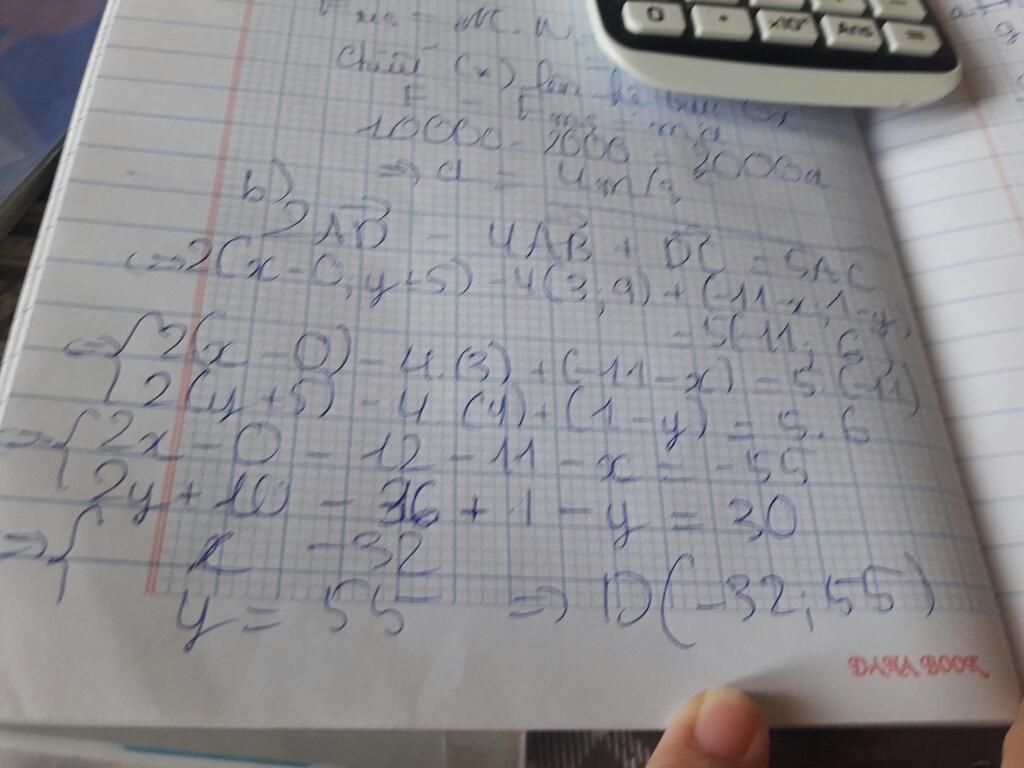 = M. N.
Chiếu (x)
F - Fms = ma
10000 - 2000 = 2000a
=> a = 4m/s
b)
2AD - 4AB + DC = 5AC
<=> 2(x-0; y+5) - 4(3; 9) + (-11-x; 1-y)
= 5(-11; 6)
=> { 2(x - 0) - 4.(3) + (-11-x) = 5.(-11)
2(y+5) - 4 (9) + (1-y) = 5.6
=> { 2x - 0 - 12 - 11 - x = -55
2y + 10 - 36 + 1 - y = 30
=> { x -32
y = 55 => D(-32; 55)
DANA BOOK
0 . x10ˣ Ans =